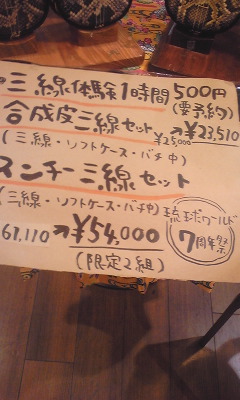 三線体験1時間500円
(要予約)
合成皮三線セット
¥25,000→¥23,510
(三線・ソフトケース・バチ中)
スンチー三線セット
(三線・ソフトケース・バチ中)
61,110→¥54,000
(限定2組)
琉球ワールド
7周年祭